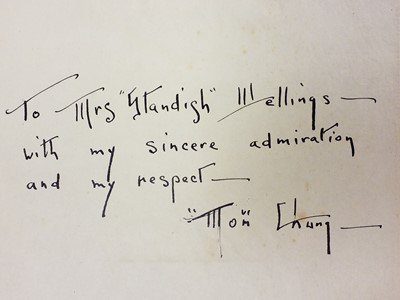 To Mrs "Standish" Mellings —
with my sincere admiration
and my respect —
"Mon" Chung —